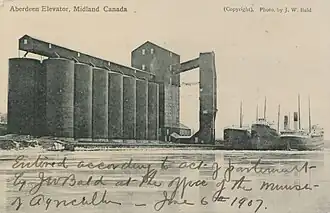 Aberdeen Elevator, Midland Canada
(Copyright). Photo. by J. W. Bald
Entered according to act of parlement
by JW Bald at the office of the Minister
of Agriculture - June 6th 1907.